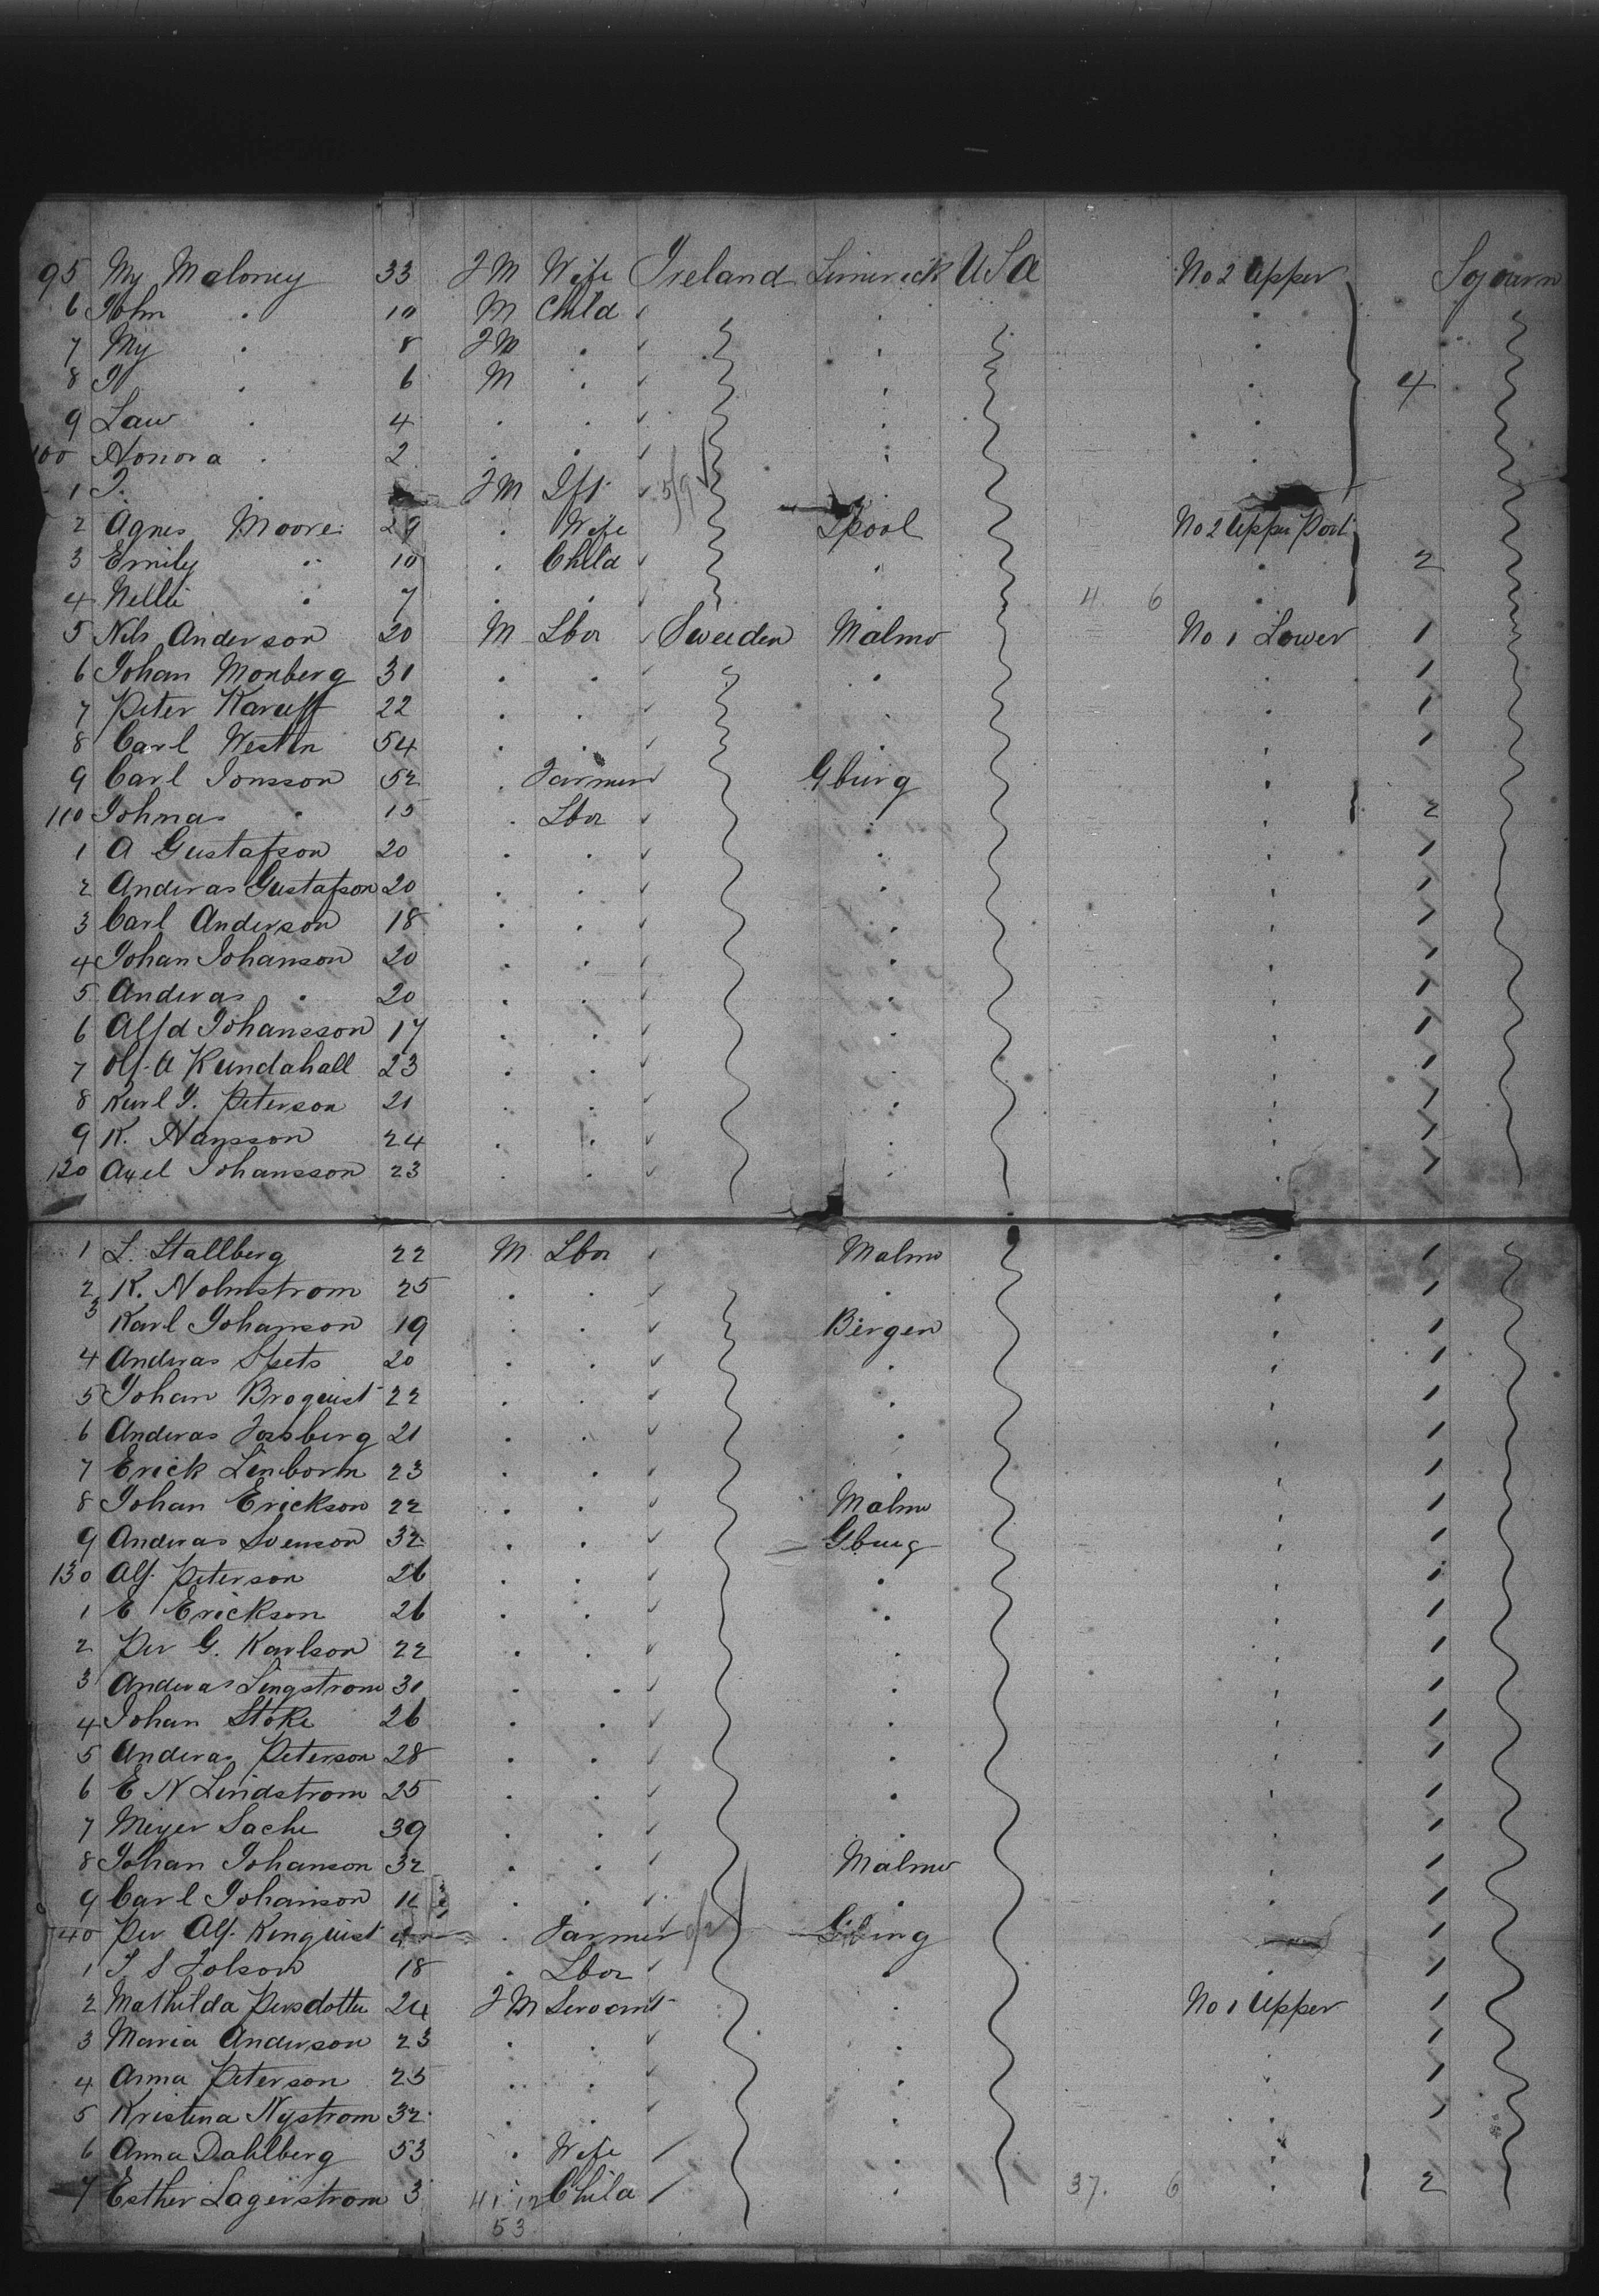 95 My Maloney 33 F M Wife Ireland Limerick U S A No 2 Upper Sojourn
6 John " 10 M Child "
7 My " 8 F M " "
8 " 6 M " " 4
9 Law " 4 " " "
100 Honora " 2 " " "
1 " F M Ift "
2 Agnes Moore 29 " Wife Lpool No 2 Upper Port
3 Emily " 10 " Child " 2
4 Nellie " 7 " " " 4. 6
5 Nils Anderson 20 M Lbor Sweeden Malmo No 1 Lower 1
6 Johan Monberg 31 " " " 1
7 Peter 22 " " " 1
8 Carl Westin 54 " " " 1
9 Carl Jonsson 52 " Farmer Gburg
110 Johnas " 15 " Lbor " 2
1 A Gustafson 20 " " " 1
2 Anderas Gustafson 20 " " " 1
3 Carl Anderson 18 " " " 1
4 Johan Johanson 20 " " " 1
5 Anderas " 20 " " " 1
6 Alfd Johansson 17 " " " 1
7 Olf. A Kundahall 23 " " " 1
8 Karl J. Peterson 21 " " " 1
9 K. Hansson 24 " " " 1
120 Axel Johansson 23 " " " 1
1 L. Stallberg 22 M Lbor Malmo " 1
2 K. Holmstrom 25 " " " 1
3 Karl Johanson 19 " " Bergen " 1
4 Anderas Spets 20 " " " 1
5 Johan Broquist 22 " " " 1
6 Anderas Forsberg 21 " " " 1
7 Erick Linborm 23 " " " 1
8 Johan Erickson 22 " " Malmo " 1
9 Anderas Svenson 32 " " Gburg " 1
130 Alf. Peterson 26 " " " 1
1 E Erickson 26 " " " 1
2 Per G. Karlson 22 " " " 1
3 Anderas Lingstrom 31 " " " 1
4 Johan Stoke 26 " " " 1
5 Anderas Peterson 28 " " " 1
6 E N Lindstrom 25 " " " 1
7 Meyer Sache 39 " " " 1
8 Johan Johanson 32 " " Malmo " 1
9 Carl Johanson 11 " " " 1
140 Per Alf. Kinquist " Farmer Gburg 1
1 J S Folson 18 " Lbor " 1
2 Mathilda Persdotter 24 F M Servant " No 1 Upper 1
3 Maria Anderson 23 " " " 1
4 Anna Peterson 25 " " " 1
5 Kristina Nystrom 32 " " " 1
6 Anna Dahlberg 53 " Wife "
7 Esther Lagerstrom 3 41 12 Child " 37. 6 " 2
53